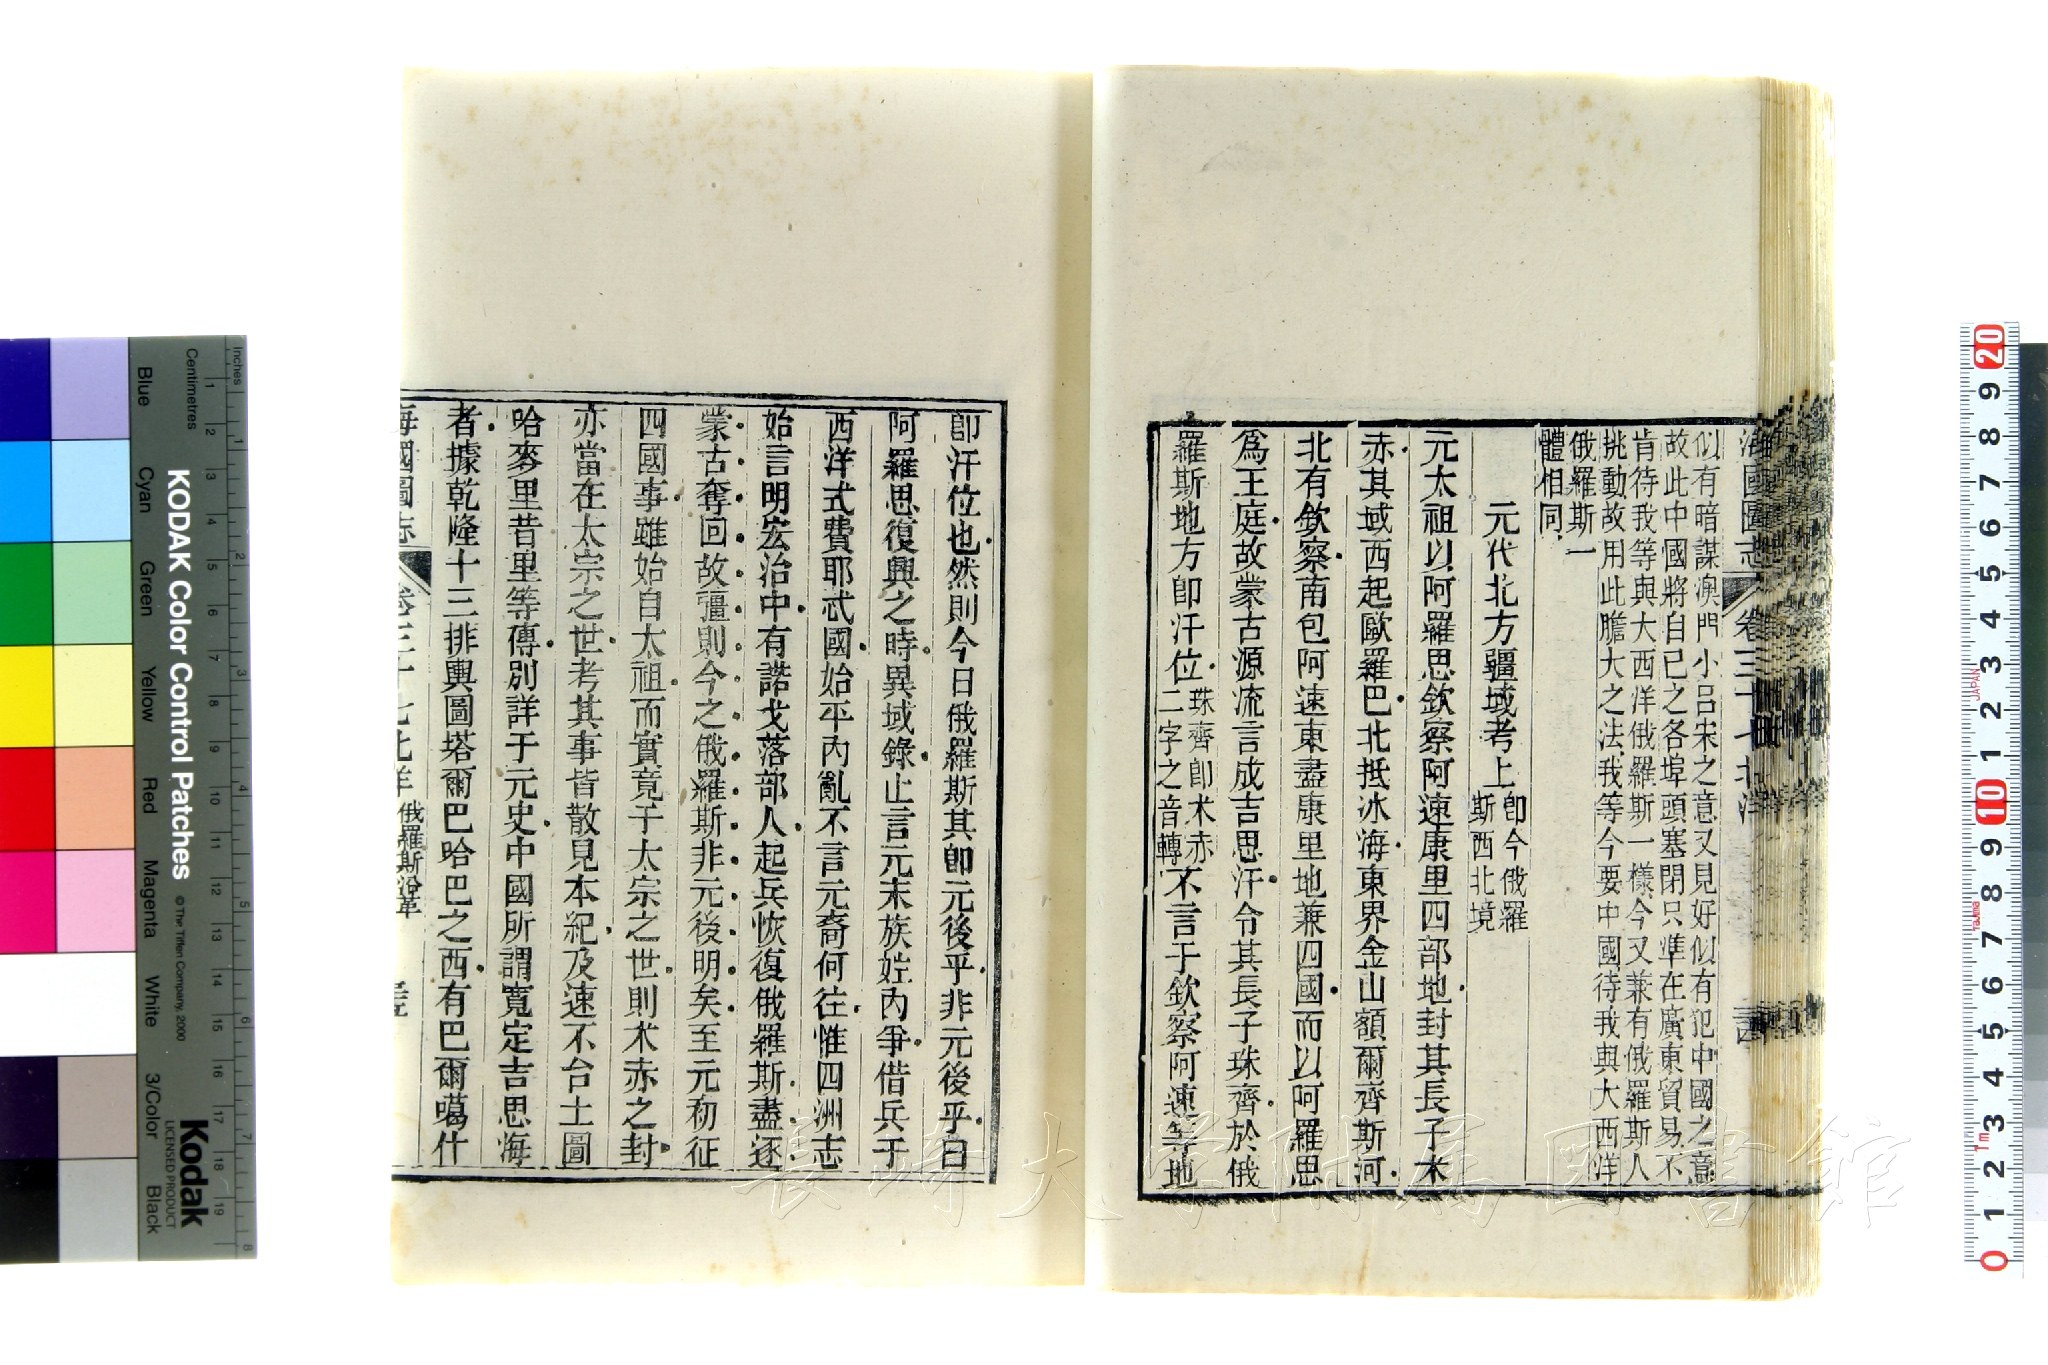 海國圖志 卷三十七 北洋
似有暗謀澳門小呂宋之意又見好似有犯中國之意
故此中國將自己之各埠頭塞閉只準在廣東貿易不
肯待我等與大西洋俄羅斯一樣今又兼有俄羅斯人
挑動故用此膽大之法我等今要中國待我與大西洋
俄羅斯一
體相同
元代北方疆域考上
卽今俄羅
斯西北境
元太祖以阿羅思欽察阿速康里四部地封其長子朮
赤其域西起歐羅巴北抵冰海東界金山額爾齊斯河
北有欽察南包阿速東盡康里地兼四國而以阿羅思
爲王庭故蒙古源流言成吉思汗令其長子珠齊於俄
羅斯地方卽汗位
珠齊卽朮赤
二字之音轉
不言于欽察阿速等地
卽汗位也然則今日俄羅斯其卽元後乎非元後乎曰
阿羅思復興之時異域錄止言元末族姓內爭借兵于
西洋式費耶忒國始平內亂不言元裔何往惟四洲志
始言明宏治中有諾戈落部人起兵恢復俄羅斯盡逐
蒙古奪回故疆則今之俄羅斯非元後明矣至元初征
四國事雖始自太祖而實竟于太宗之世則朮赤之封
亦當在太宗之世考其事皆散見本紀及速不台土圖
哈麥里昔里等傳別詳于元史中國所謂寬定吉思海
者據乾隆十三排輿圖塔爾巴哈巴之西有巴爾噶什
海國圖志 卷三十七 北洋 俄羅斯沿革
KODAK Color Control Patches
© The Tiffen Company, 2000
Kodak
LICENSED PRODUCT
Inches
Centimetres
Blue
Cyan
Green
Yellow
Red
Magenta
White
3/Color
Black
JAPAN
長崎大学附属図書館